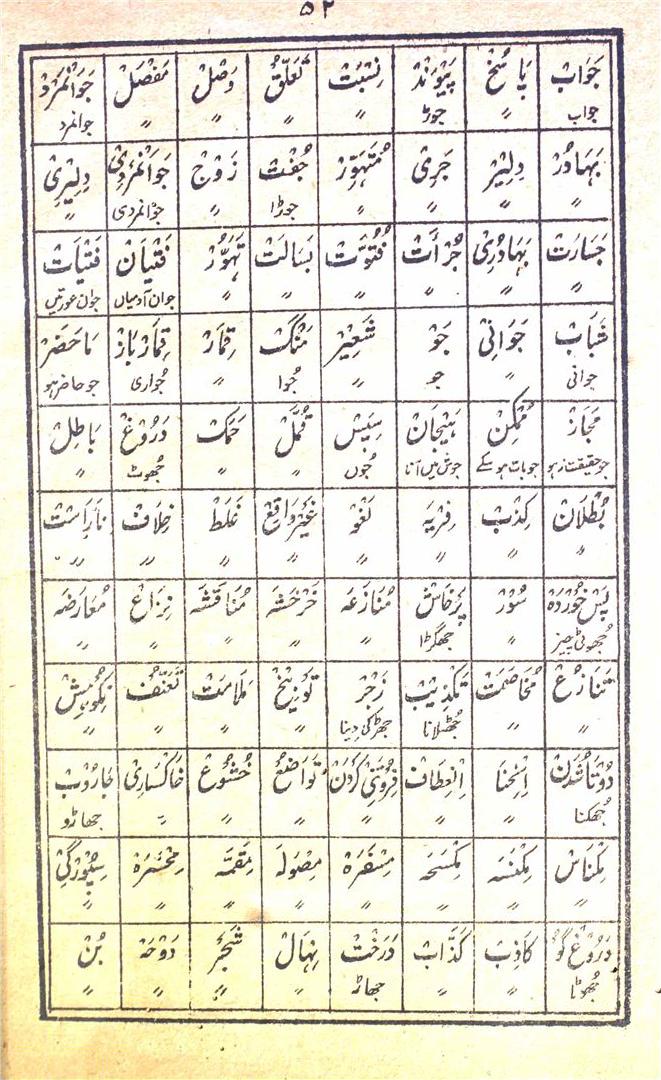 ۵۲
جَوَاب پَاسُخ پَیْوَنْد نِسْبَت تَعَلُّق وَصْل مَفْصَل جَوَانْمَرْد
جواب 〃 جوڑ 〃 〃 〃 〃 جوانمرد
بَہَادُر دِلِیْر جَرِی مُتَہَوِّر جُفْت زَوْج جَوَانْمَرْدِی دِلِیْرِی
〃 〃 〃 〃 جوڑا 〃 جوانمردی 〃
جَسَارَت بَہَادُرِی جُرْأَت فُتُوَّت بَسَالَت تَہَوُّر فَتَیَان فَتَیَات
〃 〃 〃 〃 〃 〃 جوان آدمیاں جوان عورتیں
شَبَاب جَوَانِی جَو شَعِیْر مَنْگ قِمَار قِمَارْبَاز مَاحَضَر
جوانی 〃 جو 〃 جُوا 〃 جُواری جو حاضر ہو
مَجَاز مُمْکِن ہَیْجَان سِپِس قُمَّل خَمَک دَرُوْغ بَاطِل
جو حقیقت نہ ہو جو بات ہو سکے جوش میں آنا جُوں 〃 〃 جھوٹ 〃
بُطْلَان کِذْب فِرْیَہ لَغْو غَیْر وَاقِع غَلَط خِلَاف نَارَاسْت
〃 〃 〃 〃 〃 〃 〃 〃
پَسْ خُوْرْدَہ سُوْر پَرْخَاش مُنَازَعَہ خَرْخَشَہ مُنَاقَشَہ نِزَاع مُعَارَضَہ
جھوٹی چیز 〃 جھگڑا 〃 〃 〃 〃 〃
تَنَازُع مُخَاصَمَت تَکْذِیْب زَجْر تَوْبِیْخ مَلَامَت تَعَنُّف نِکُوْہِش
〃 〃 جُھٹلانا جھڑکی دینا 〃 〃 〃 〃
دُوتَا شُدَن اِنْحِنَا اِنْعِطَاف فِرُوتَنِی کَرْدَن تَوَاضُع خُشُوْع خَاکْسَارِی جَارُوْب
جُھکنا 〃 〃 〃 〃 〃 〃 جھاڑو
مِکْنَاس مِکْنَسَہ مِکْسَحَہ مِسْفَرَہ مِصْوَلَہ مِقَمَّہ مِخْسَرَہ
〃 〃 〃 〃 〃 〃 〃 〃
دَرُوْغ گُو کَاذِب کَذَّاب دَرَخْت نِہَال شَجَر دَوْحَہ بُن
جُھوٹا 〃 〃 جھاڑ 〃 〃 〃 〃